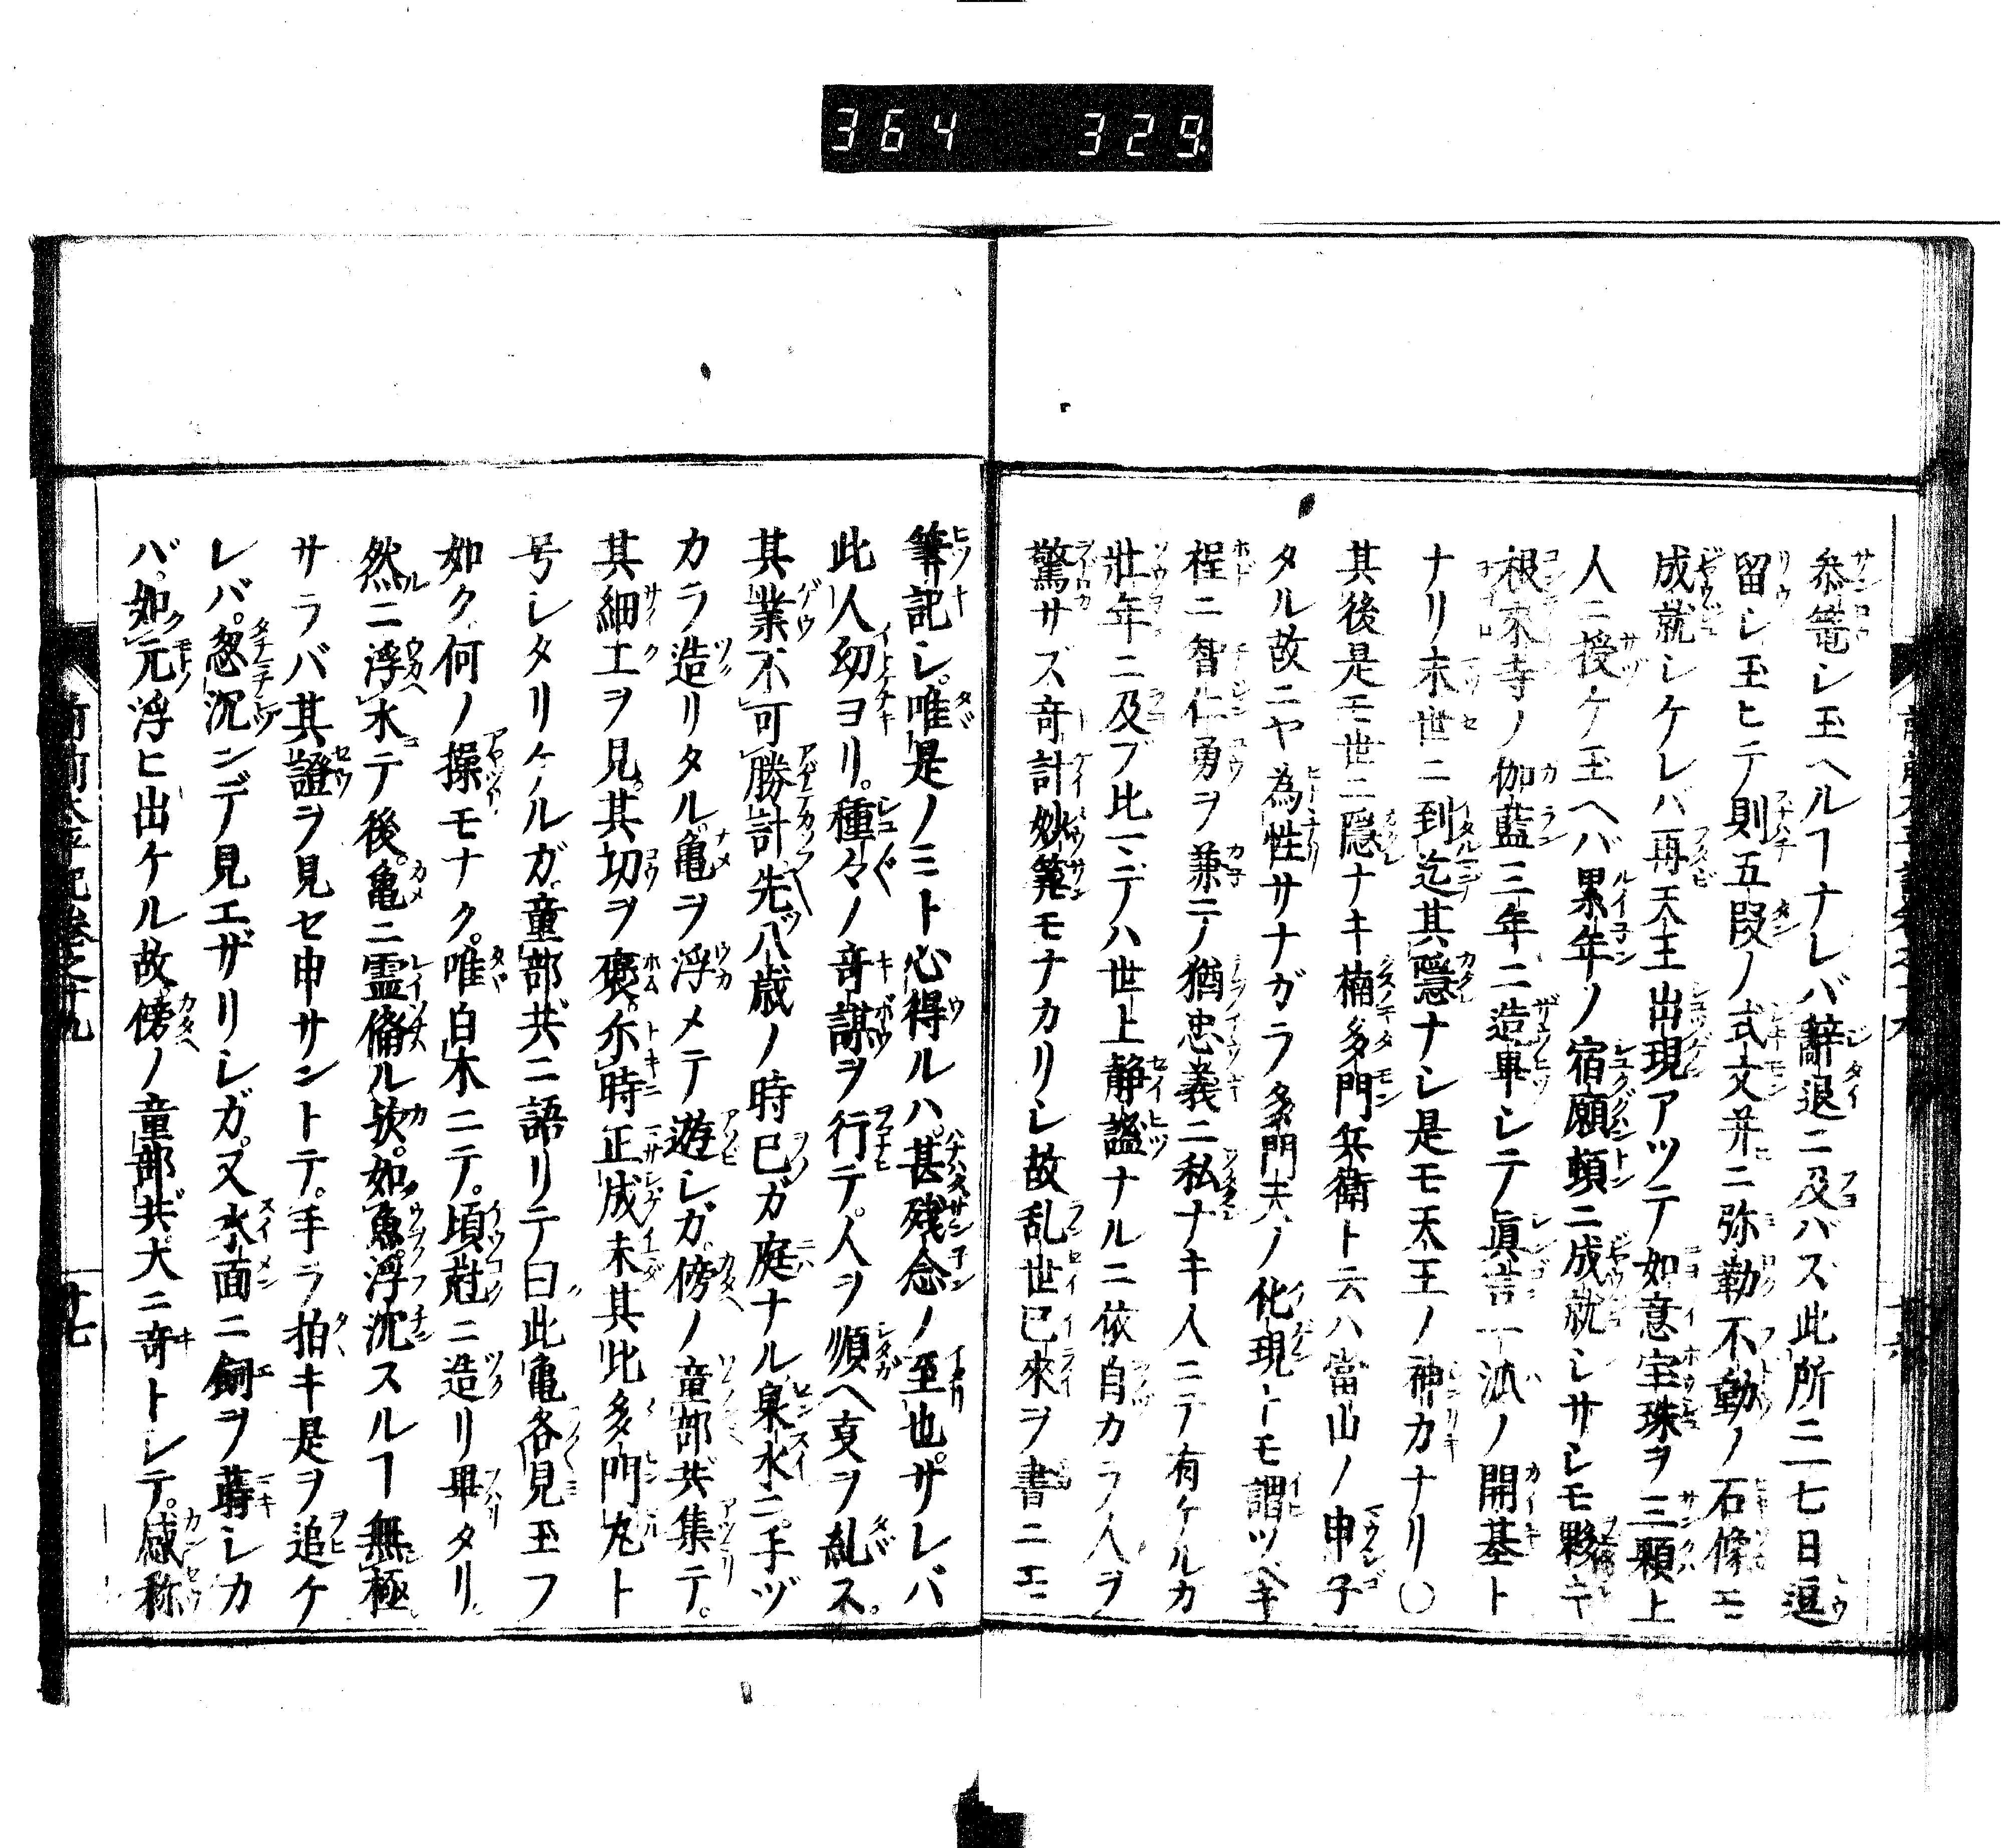 364 329
参篭シ玉ヘルヿナレバ辞退ニ及バス此所ニ二七日逗
留シ玉ヒテ則五段ノ式文并ニ弥勒不動ノ石像モ
成就シケレバ再天王出現アツテ如意宝珠ヲ三顆上
人ニ授ケ玉ヘバ累年ノ宿願頓ニ成就シサシモ夥キ
根来寺ノ伽藍三年ニ造畢シテ眞言一派ノ開基ト
ナリ末世ニ到迄其隠ナシ是モ天王ノ神力ナリ〇
其後是モ世ニ隠ナキ楠多門兵衛ト云ハ當山ノ申子
タル故ニヤ為性サナガラ多門夫ノ化現トモ謂ツヘキ
程ニ智仁勇ヲ兼テ猶忠義ニ私ナキ人ニテ有ケルカ
壮年ニ及ブ比マデハ世上静謐ナルニ依自カラ人ヲ
驚サズ奇計妙筭モナカリシ故乱世已來ヲ書ニモ
筆記シ。唯是ノミト心得ルハ。甚残念ノ至也。サレバ
此人幼ヨリ。種々ノ奇謀ヲ行テ。人ヲ順ヘ支ヲ糺ス。
其業不可勝計先ヅ八歳ノ時已ガ庭ナル泉水ニ。手ヅ
カラ造リタル亀ヲ浮メテ遊シガ。傍ノ童部共集テ。
其細工ヲ見。其切ヲ褒。尓時正成未其比多門丸ト
号シタリケルガ。童部共ニ語リテ曰此亀各見玉フ
如ク何ノ操モナク。唯白木ニテ。頃尅ニ造リ畢タリ。
然ニ浮水テ後。亀ニ霊備ル欤。如魚浮沈スルヿ無極
サラバ其證ヲ見セ申サントテ。手ラ拍キ是ヲ追ケ
レバ。忽沉ンデ見エザリシガ。又水面ニ飼ヲ蒔シカ
バ。如元浮ヒ出ケル故。傍ノ童部共。大ニ奇トシテ。感称
前前太平記巻之十九
十七